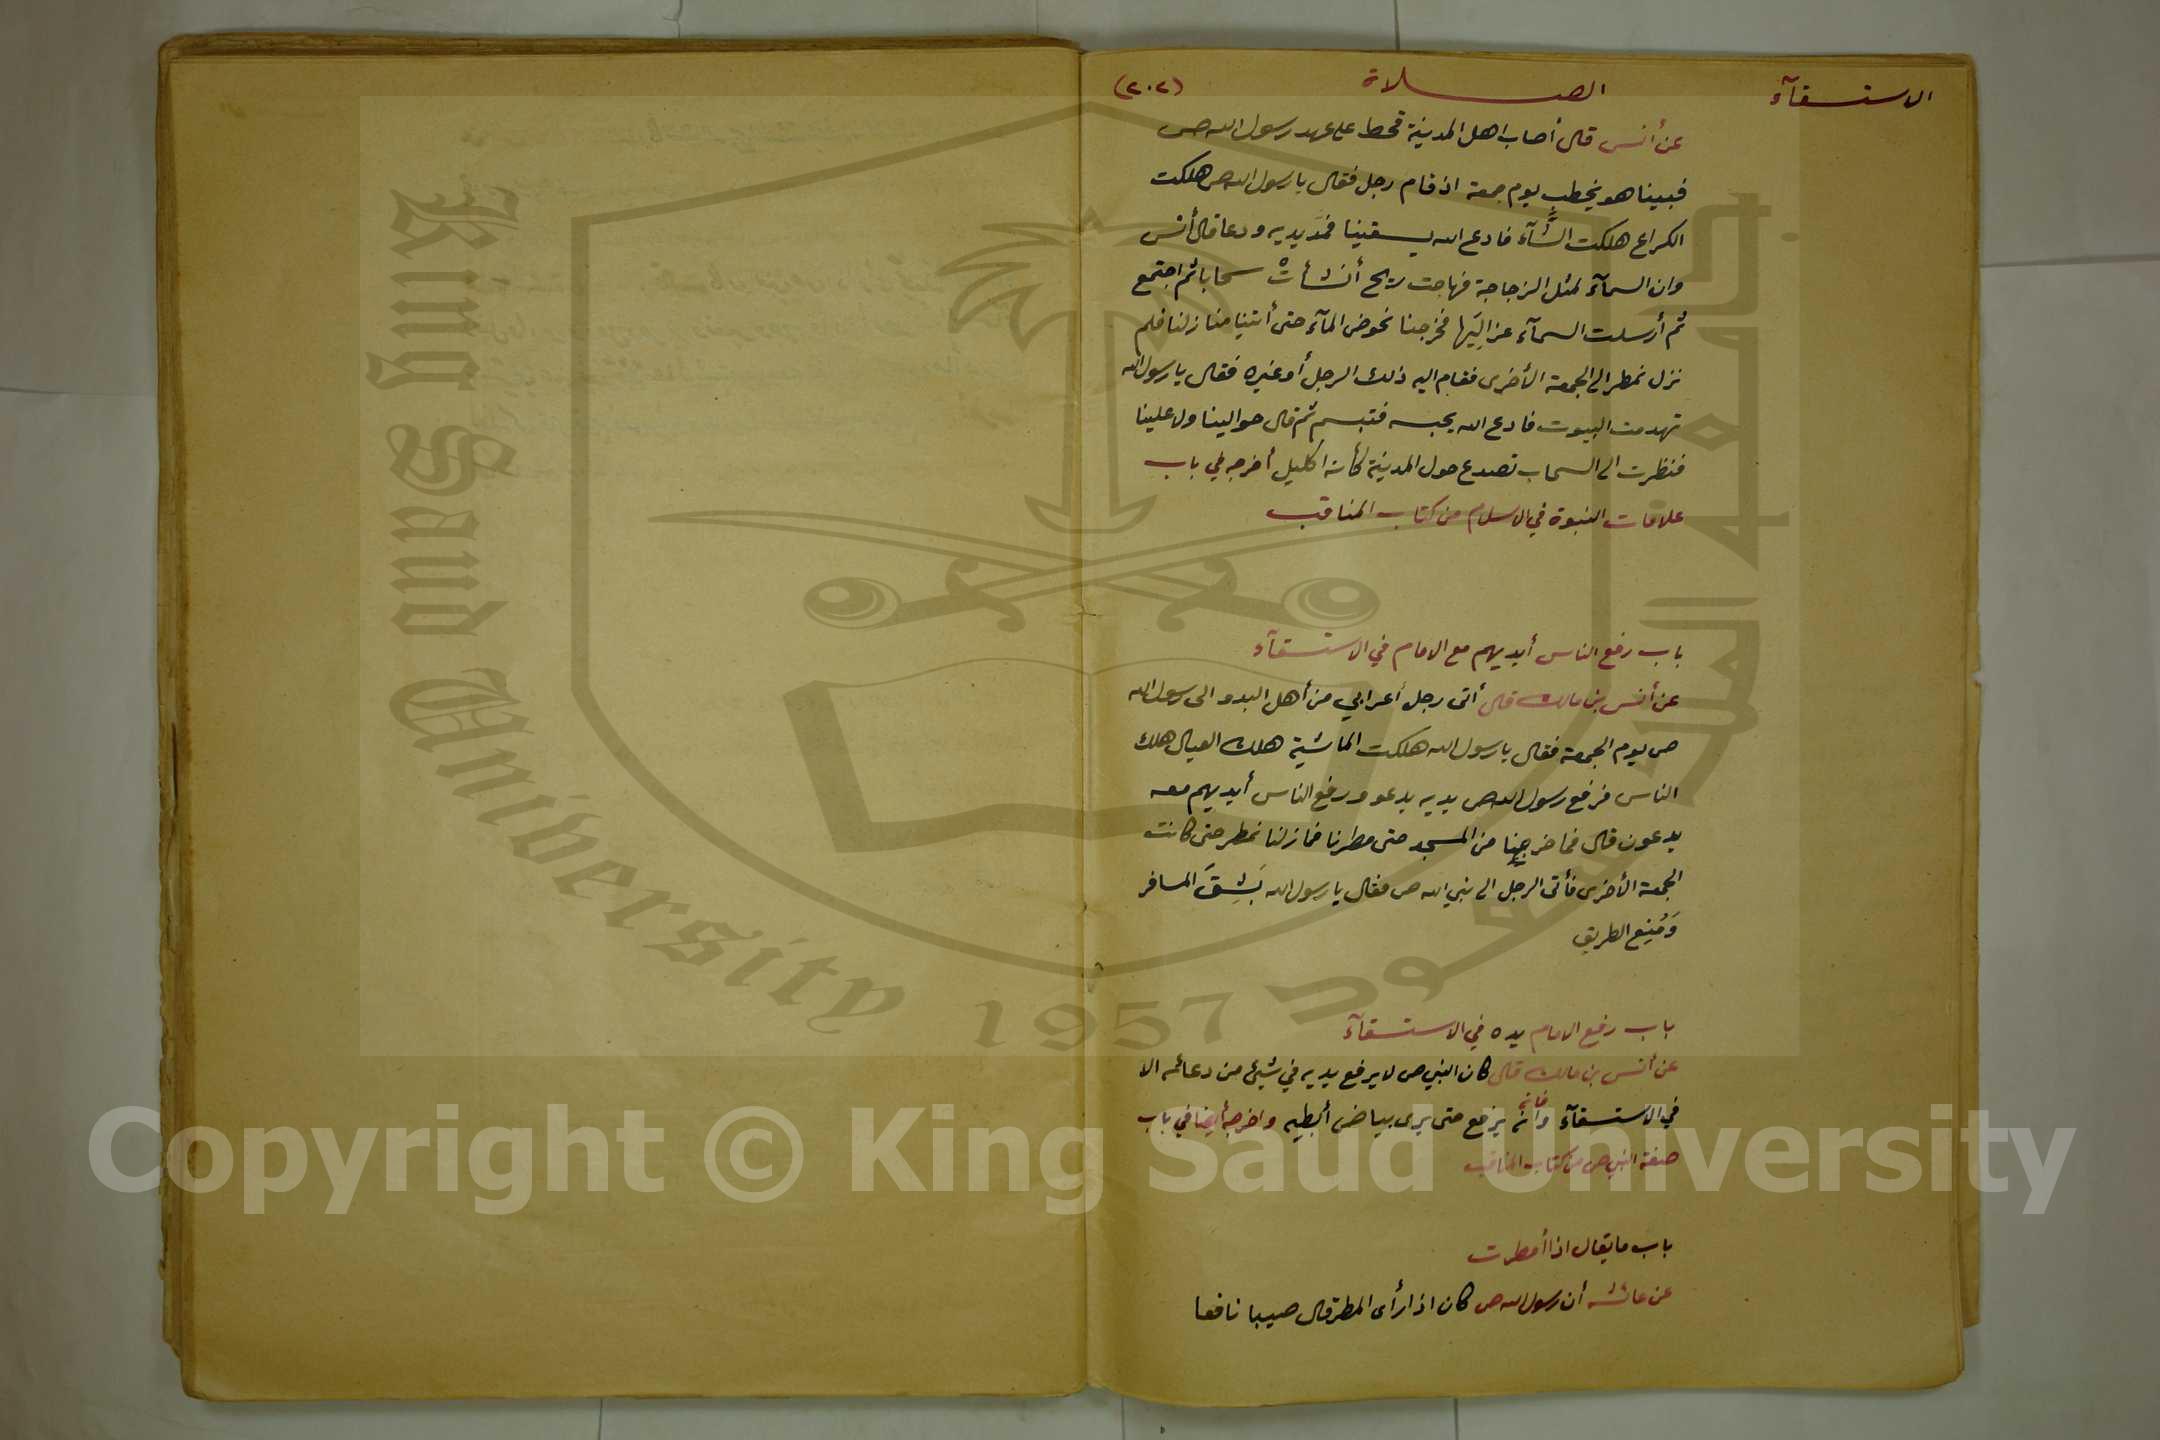 الاستسقآء الصلاة (٢٠٢)
عن أنس قال أصاب اهل المدينة قحط على عهد رسول الله ص
فبينا هو يخطب يوم جمعة اذ قام رجل فقال يا رسول الله ص هلكت
الكراع هلكت الشَّآء فادع الله يسقينا فمَدَّ يديه ودعا قال أنس
وان السمآء لمثل الزجاجة فهاجت ريح أنشأتْ سحابا ثم اجتمع
ثم أرسلت السمآء عزالِيَها فخرجنا نخوض المآء حتى أتينا منازلنا فلم
نزل نمطر الى الجمعة الأخرى فقام اليه ذلك الرجل أو غيره فقال يا رسول الله
تهدمت البيوت فادع الله يحبسه فتبسم ثم قال حوالينا ولا علينا
فنظرت الى السحاب تصدع حول المدينة كأنه اكليل أخرجه في باب
علامات النبوة في الاسلام من كتاب المناقب
باب رفع الناس أيديهم مع الامام في الاستسقآء
عن أنس بن مالك قال أتى رجل أعرابي من أهل البدو الى رسول الله
ص يوم الجمعة فقال يا رسول الله هلكت الماشية هلك العيال هلك
الناس فرفع رسول الله ص يديه يدعو ورفع الناس أيديهم معه
يدعون قال فما خرجنا من المسجد حتى مطرنا فما زلنا نمطر حتى كانت
الجمعة الأخرى فأتى الرجل الى نبي الله ص فقال يا رسول الله بَشِقَ المسافر
وَمُنِع الطريق
باب رفع الامام يده في الاستسقآء
عن أنس بن مالك قال كان النبي ص لا يرفع يديه في شيئ من دعائه الا
في الاستسقآء وانه فانه يرفع حتى يرى بياض أبطيه واخرجه أيضا في باب
صفة النبي ص من كتاب المناقب
باب ما يقال اذا أمطرت
عن عائشه أن رسول الله ص كان اذا رأى المطر قال صيبا نافعا
King Saud University
1957
Copyright © King Saud University